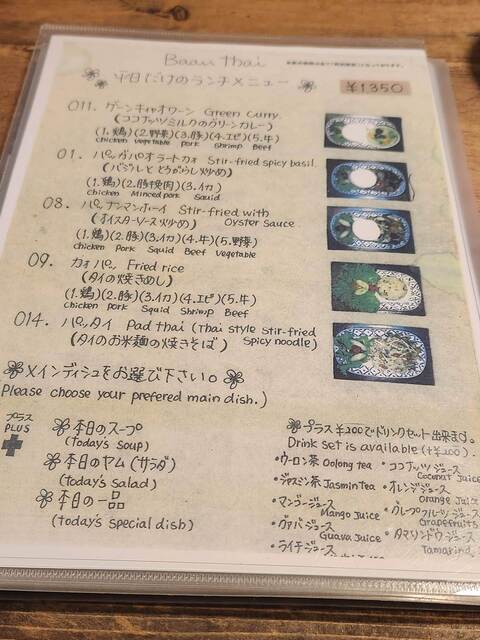 Baan thai
平日だけのランチメニュー
¥1,350
011. ゲーンキャオワーン Green Curry.
(ココナッツミルクのグリーンカレー)
(1.鶏)(2.野菜)(3.豚)(4.エビ)(5.牛)
chicken vegetable pork shrimp Beef
01. パッガパオラートカオ Stir-fried spicy basil.
(バジルととうがらし火少め)
(1.鶏)(2.豚挽肉)(3.イカ)
chicken Minced pork Squid
08. パッナンマンホーイ Stir-fried with
(オイスターソース火少め) Oyster Sauce
(1.鶏)(2.豚)(3.イカ)(4.牛)(5.野菜)
chicken pork Squid Beef Vegetable
09. カオパッ Fried rice
(タイの焼きめし)
(1.鶏)(2.豚)(3.イカ)(4.エビ)(5.牛)
chicken pork Squid Shrimp Beef
014. パッタイ Pad thai (Thai style stir-fried
(タイのお米麺の焼きそば) Spicy noodle)
メインディシュをお選び下さい。
Please choose your prefered main dish.)
プラス
PLUS
本日のスープ
(today's soup)
本日のヤム(サラダ)
(today's salad)
本日の一品
(today's special dish)
プラス¥200でドリンクセット出来ます。
Drink set is available (+¥200).
・ウーロン茶 Oolong tea
・ジャスミン茶 Jasmin tea
・マンゴージュース
Mango Juice
・グァバジュース
Guava Juice
・ライチジュース
・ココナッツジュース
Coconut Juice
・オレンジジュース
Orange Juice
・グレープフルーツジュース
Grapefruits
・タマリンドウジュース
Tamarind